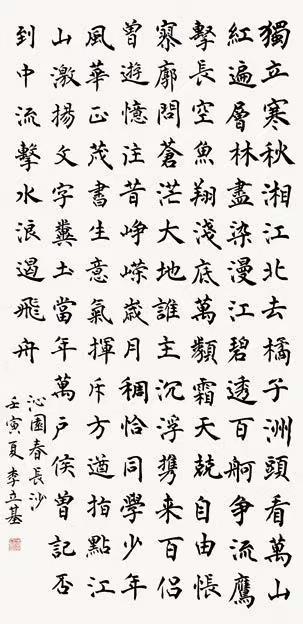 獨立寒秋湘江北去橘子洲頭看萬山
紅遍層林盡染漫江碧透百舸争流鷹
擊長空魚翔淺底萬類霜天競自由悵
寥廓問蒼茫大地誰主沉浮携来百侣
曾遊憶往昔崢嶸歲月稠恰同學少年
風華正茂書生意氣揮斥方遒指點江
山激揚文字糞土當年萬戶侯曾記否
到中流擊水浪遏飛舟
沁園春長沙
壬寅夏李立基